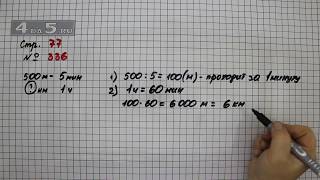 4DA5.RU
Стр. 77
№ 336
500м - 5 мин
? км 1ч
1) 500 : 5 = 100(м) - проходит за 1 минуту
2) 1ч = 60 мин
100 · 60 = 6 000 м = 6 км